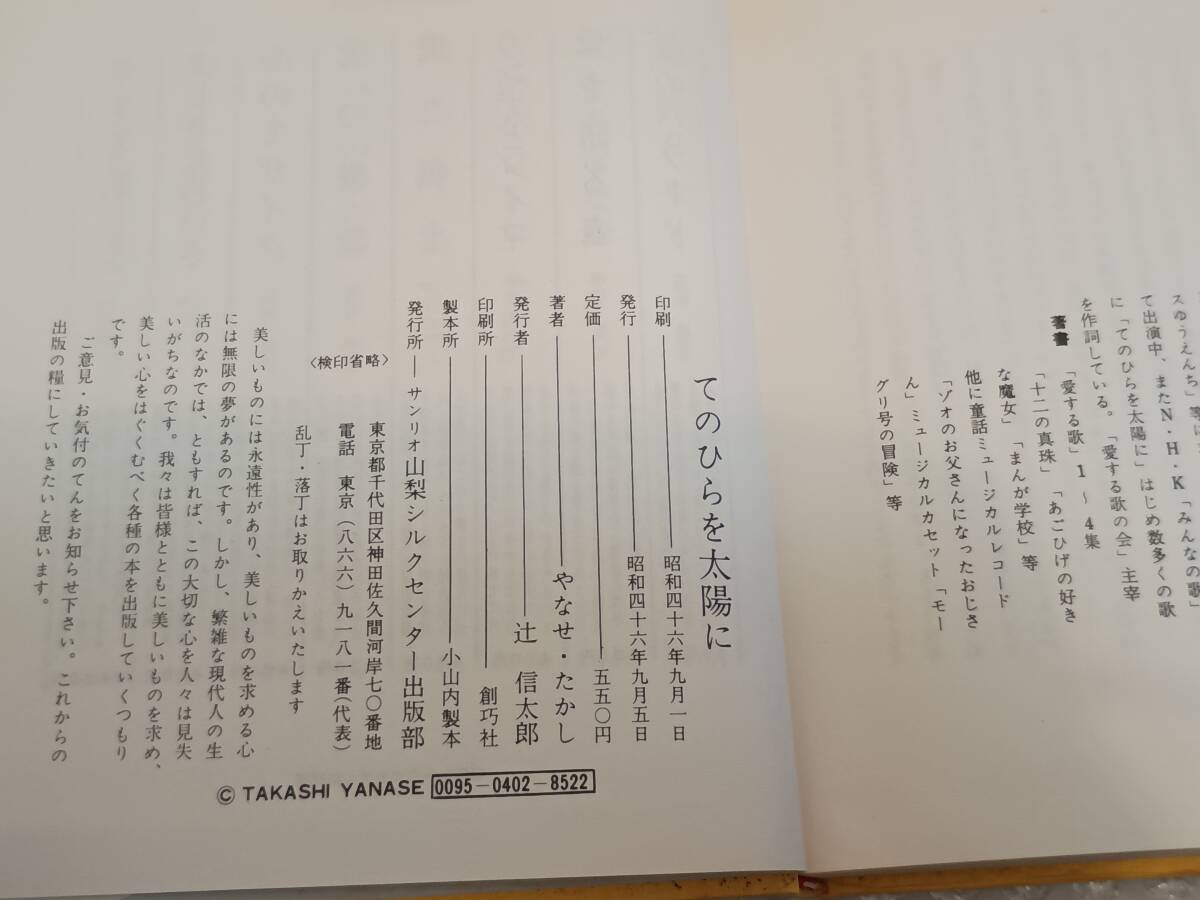 スゆうえんち」等に
て出演中、またN・H・K「みんなの歌」
に「てのひらを太陽に」はじめ数多くの歌
を作詞している。「愛する歌の会」主宰
著書
「愛する歌」1～4集
「十二の真珠」「あごひげの好き
な魔女」「まんが学校」等
他に童話ミュージカルレコード
「ゾオのお父さんになったおじさ
ん」ミュージカルカセット「モー
グリ号の冒険」等
てのひらを太陽に
印刷――昭和四十六年九月一日
発行――昭和四十六年九月五日
定価――五五〇円
著者――やなせ・たかし
発行者――辻 信太郎
印刷所――創巧社
製本所――小山内製本
発行所―サンリオ山梨シルクセンター出版部
〈検印省略〉
東京都千代田区神田佐久間河岸七〇番地
電話 東京(八六六)九一八一番(代表)
乱丁・落丁はお取りかえいたします
美しいものには永遠性があり、美しいものを求める心
には無限の夢があるのです。しかし、繁雑な現代人の生
活のなかでは、ともすれば、この大切な心を人々は見失
いがちなのです。我々は皆様とともに美しいものを求め、
美しい心をはぐくむべく各種の本を出版していくつもり
です。
ご意見・お気付のてんをお知らせ下さい。これからの
出版の糧にしていきたいと思います。
© TAKASHI YANASE 0095-0402-8522